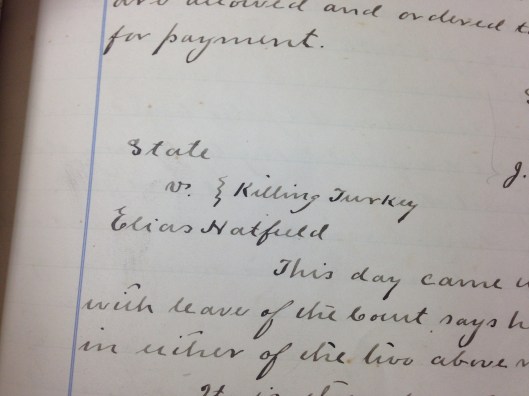 are allowed and ordered
for payment.
J.
State
vs. } Killing Turkey
Elias Hatfield
This day came
with leave of the Court says h
in either of the two above
It is